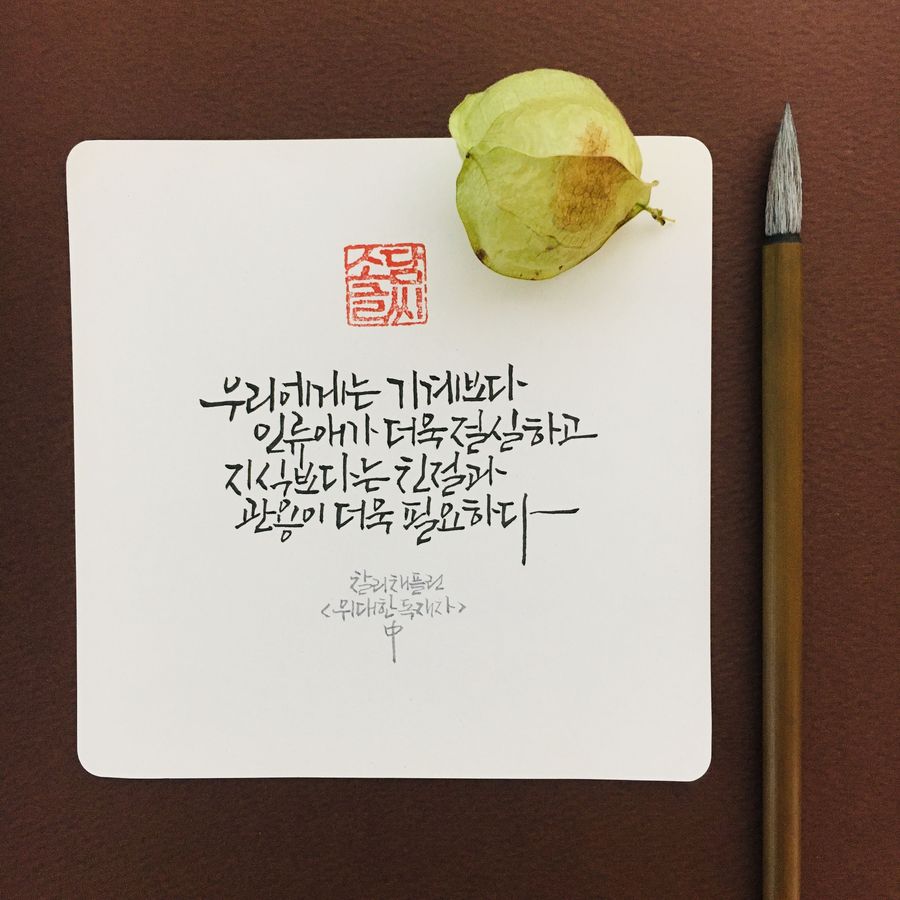 조담
글씨
우리에게는 기계보다
인류애가 더욱 절실하고
지식보다는 친절과
관용이 더욱 필요하다
찰리채플린
<위대한 독재자>
中